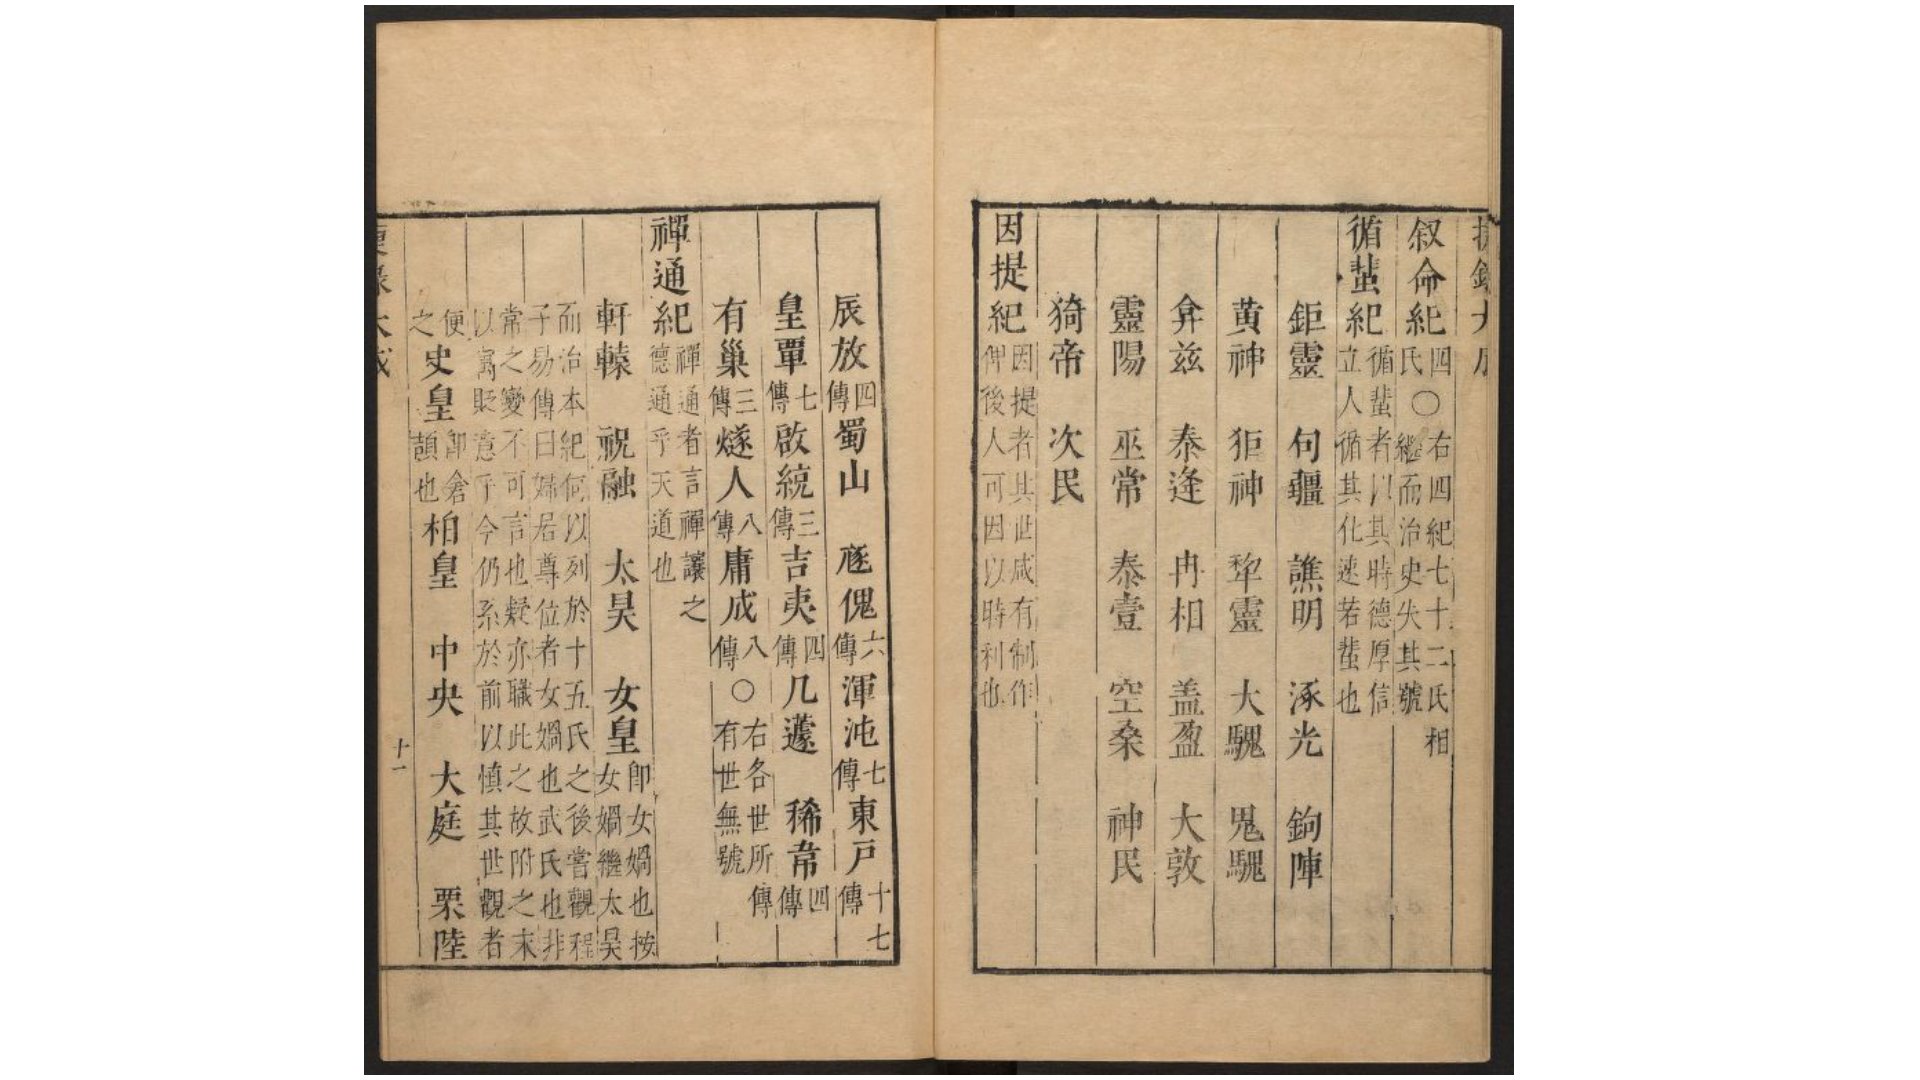 叙命紀四氏〇右四紀七十二氏相繼而治史失其號
循蜚紀循蜚者以其時德厚信立人循其化速若蜚也
鉅靈 句疆 譙明 涿光 鉤陣
黄神 㹯神 犂靈 大騩 鬼騩
弇兹 泰逢 冉相 盖盈 大敦
靈陽 巫常 泰壹 空桑 神民
猗帝 次民
因提紀因提者其世咸有制作俾後人可因以時利也
辰放四傳蜀山 豗傀六傳渾沌七傳東戶十七傳
皇覃七傳啟統三傳吉夷四傳几蘧 狶韋四傳
有巢三傳燧人八傳庸成八傳〇右各世所傳有世無號
禪通紀禪通者言禪讓之德通乎天道也
軒轅 祝融 太昊 女皇即女媧也按女媧繼太昊
而治本紀何以列於十五氏之後嘗觀程子易傳曰婦居尊位者女媧也武氏也非
常之變不可言也疑亦職此之故附之末以寓貶意乎今仍系於前以慎其世觀者
便之史皇即倉頡也柏皇 中央 大庭 栗陸
十一